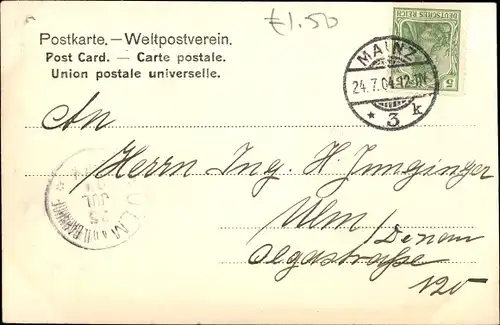 £1.50
Postkarte. — Weltpostverein.
Post Card. — Carte postale.
Union postale universelle.
DEUTSCHES REICH
5
MAINZ
24.7.04.12-1N
* 3 k
An
Herrn Ing. H. Junginger
Ulm
/Donau
Olgastraße
120
ULM
25
JUL